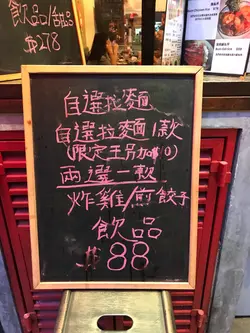 飲品/甜品
$278
自選拉麵
自選拉麵1款
(限定王另加$10)
兩選一款
炸雞/煎餃子
飲品
$88